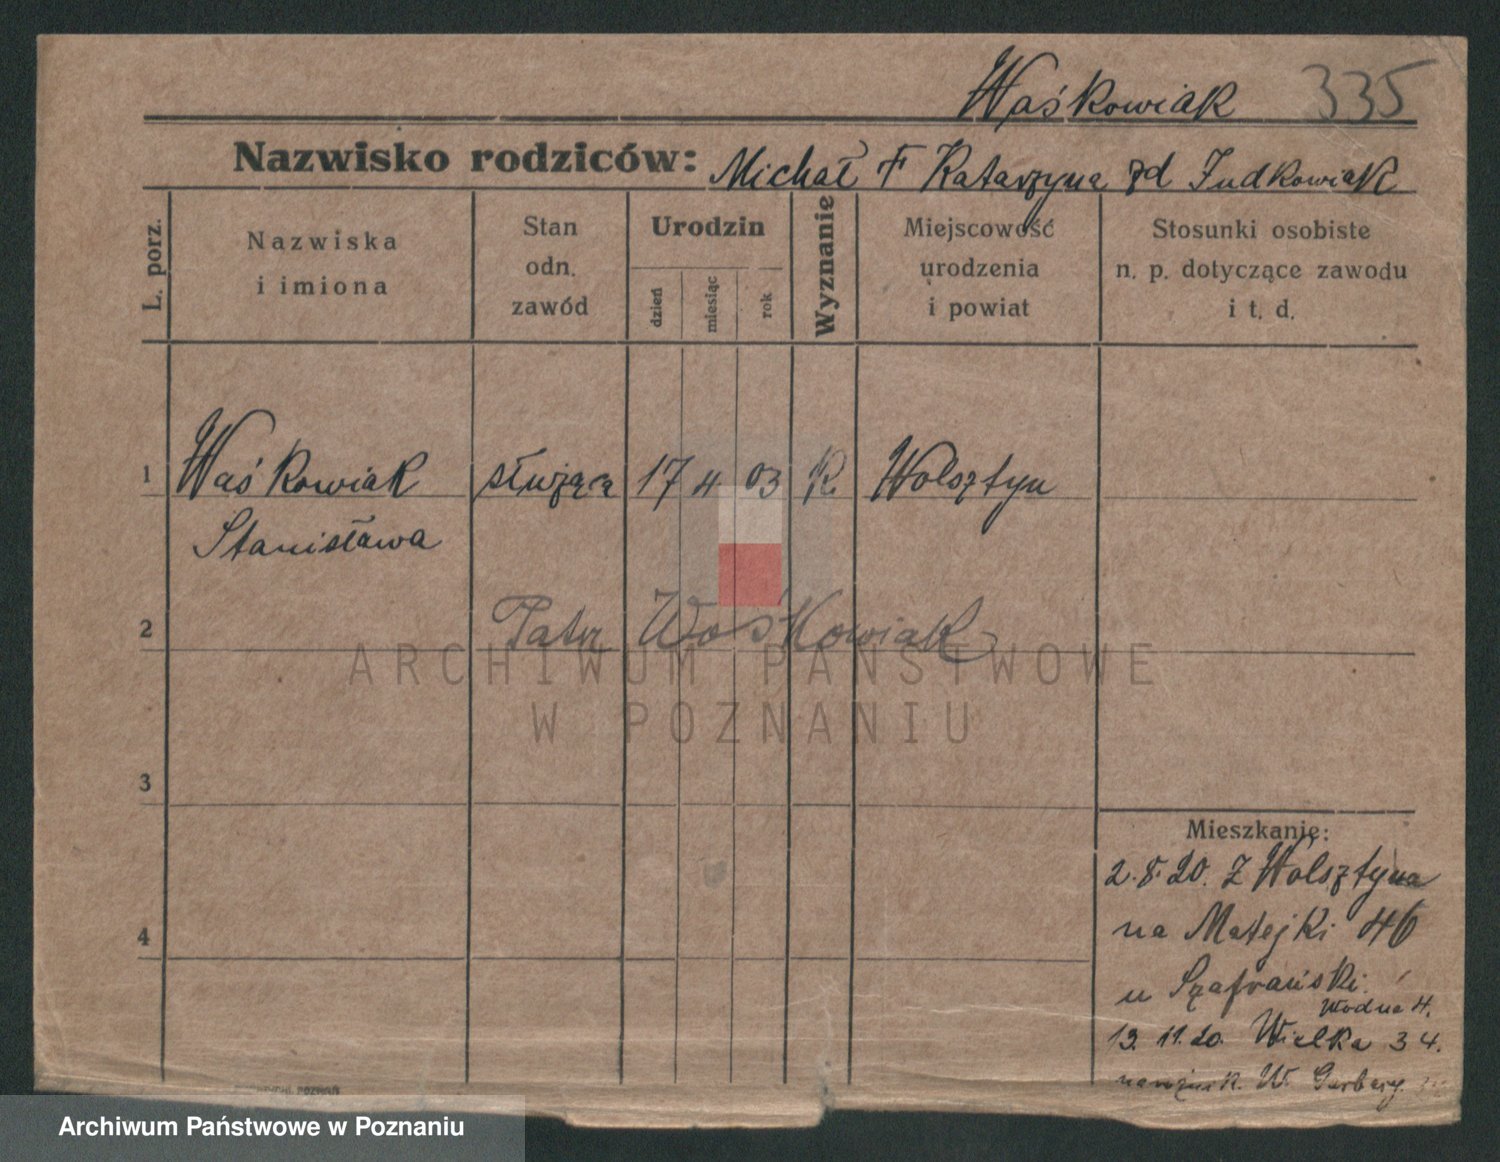 Waśkowiak 335
Nazwisko rodziców: Michał Katarzyna zd Judkowiak
L. porz.
Nazwiska
i imiona
Stan
odn.
zawód
Urodzin
dzień
miesiąc
rok
Wyznanie
Miejscowość
urodzenia
i powiat
Stosunki osobiste
n. p. dotyczące zawodu
i t. d.
1 Waśkowiak służąca 17 4 03 K. Wolsztyn
Stanisława
2 Patrz Wośkowiak
3
4
Mieszkanie:
2.8.20. z Wolsztyna
na Matejki 46
u Szafrański.
Wodna 4.
13. 11. 20. Wielka 3 4.
W. Garbary.
ARCHIWUM PAŃSTWOWE
W POZNANIU
Archiwum Państwowe w Poznaniu